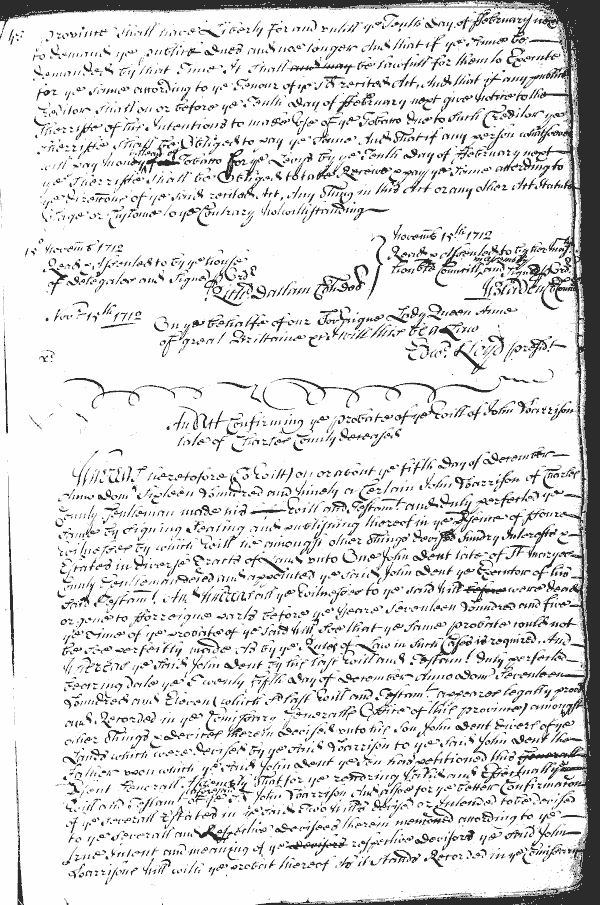 Province shall have Liberty for and untill ye Tenth day of ffebruary next
to demand ye publick dues and noe longer And that if ye same be
demanded by that Time It shall be lawfull for them to Execute
for ye same according to ye Tenour of ye sd recited Act, And that if any publick
Creditor shall on or before ye Tenth day of ffebruary next give notice to the
Sherriffe of his Intentions to make use of ye Tobacco due to such Creditor ye
Sherriffe shall be Obliged to pay ye same And that if any person whatsoever
will pay money Tobacco for ye Leavy by ye Tenth day of ffebruary next
ye Sherriffe shall be Obliged to take Receive & pay ye same according to
ye directions of ye said recited Act, Any thing in this Act or any other Act Statute
Usage or Custome to ye Contrary Notwithstanding
15o Novemb 1712
Read & Assented to by ye house
of delegates and Signed p Ordr
Richd Dallam Cl h Del
Novemb 15th 1712
Read & Assented to by her Maj
honble Councill and Signed p Ordr
Novr 15th 1712
On ye behalfe of our Sovereigne Lady Queen Anne
of great Brittaine &c I will this be a Law
Edwd Lloyd presidt
An Act Confirming ye probate of ye Will of John Harrison
late of Charles County deceased
Whereas heretofore (to Witt) on or about ye fifth day of december
Anno dom Sixteen hundred and ninety a Certain John Harrison of Charles
County Gentleman made his Will and Testamt and duly perfected ye
same by signing Sealing and publishing thereof in ye presence of ffoure
Witnesses by which Will he amongst other things devised sundry Interests &
Estates in diverse Tracts of Land unto One John Dent late of St Maryes
County Gentleman decd and appointed ye said John Dent ye Executor of his
said Testamt And Whereas all ye Witnesses to ye said Will were dead
or gone to fforreigne parts before ye yeare Seventeen hundred and five
ye time of ye probate of ye said Will soe that ye same probate could not
be soe perfectly made as by ye Rules of Law in such Cases is required. And
Whereas ye said John Dent by his last Will and Testamt duly perfected
bearing date ye Twenty fifth day of december Anno dom Seventeen
hundred and Eleven (which sd last Will and Testamt appeares legally proved
and Recorded in ye Comissary Generalls Office of this province) amongst
other things & devises therein devised unto his Son John Dent divers of ye
Lands which were devised by ye said Harrison to ye said John Dent the
ffather upon which ye said John Dent ye son has petitioned this
present Generall Assembly that for ye rendring Valid and Effectuall ye
Will and Testamt of ye sd John Harrison And alsoe for ye better Confirmacon
of ye severall Estates in ye said two Wills devised or Intended to be devised
to ye severall and Respective devisees therein menconed according to ye
true intent and meaning of ye respective devisors ye said John
Harrisons Will with ye probat thereof as it stands Recorded in ye Comissary